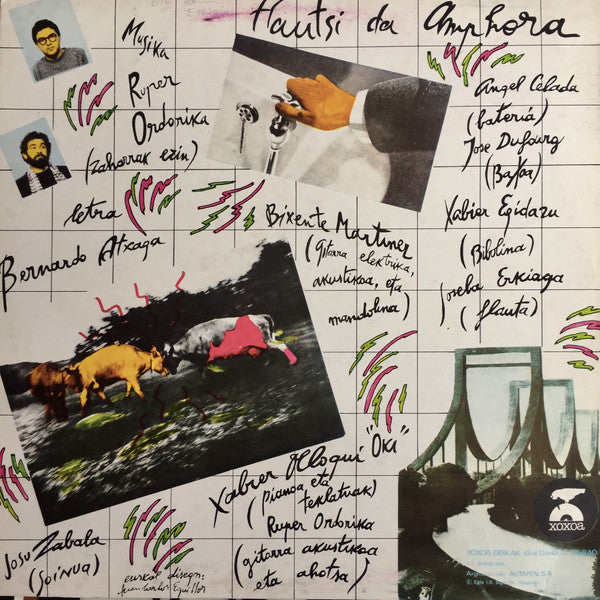 Hautsi da Amphora
Musika
Ruper
Ordorika
(zaharrak ezin)
letra
Bernardo Atxaga
Angel Celada
(bateria)
Jose Dufourg
(Baxoa)
Xabier Egidazu
(Bibolina)
Joseba Erkiaga
(flauta)
Bixente Martinez
(gitarra elektrika,
akustikoa, eta
mandolina)
"OKI"
Xabier Olloqui
(pianoa eta
teklatuak)
Ruper Ordorika
(gitarra akustikoa
eta ahotsa)
Josu Zabala
(Soinua)
azal disegn:
XOXOA
XOXOA DISKAK.